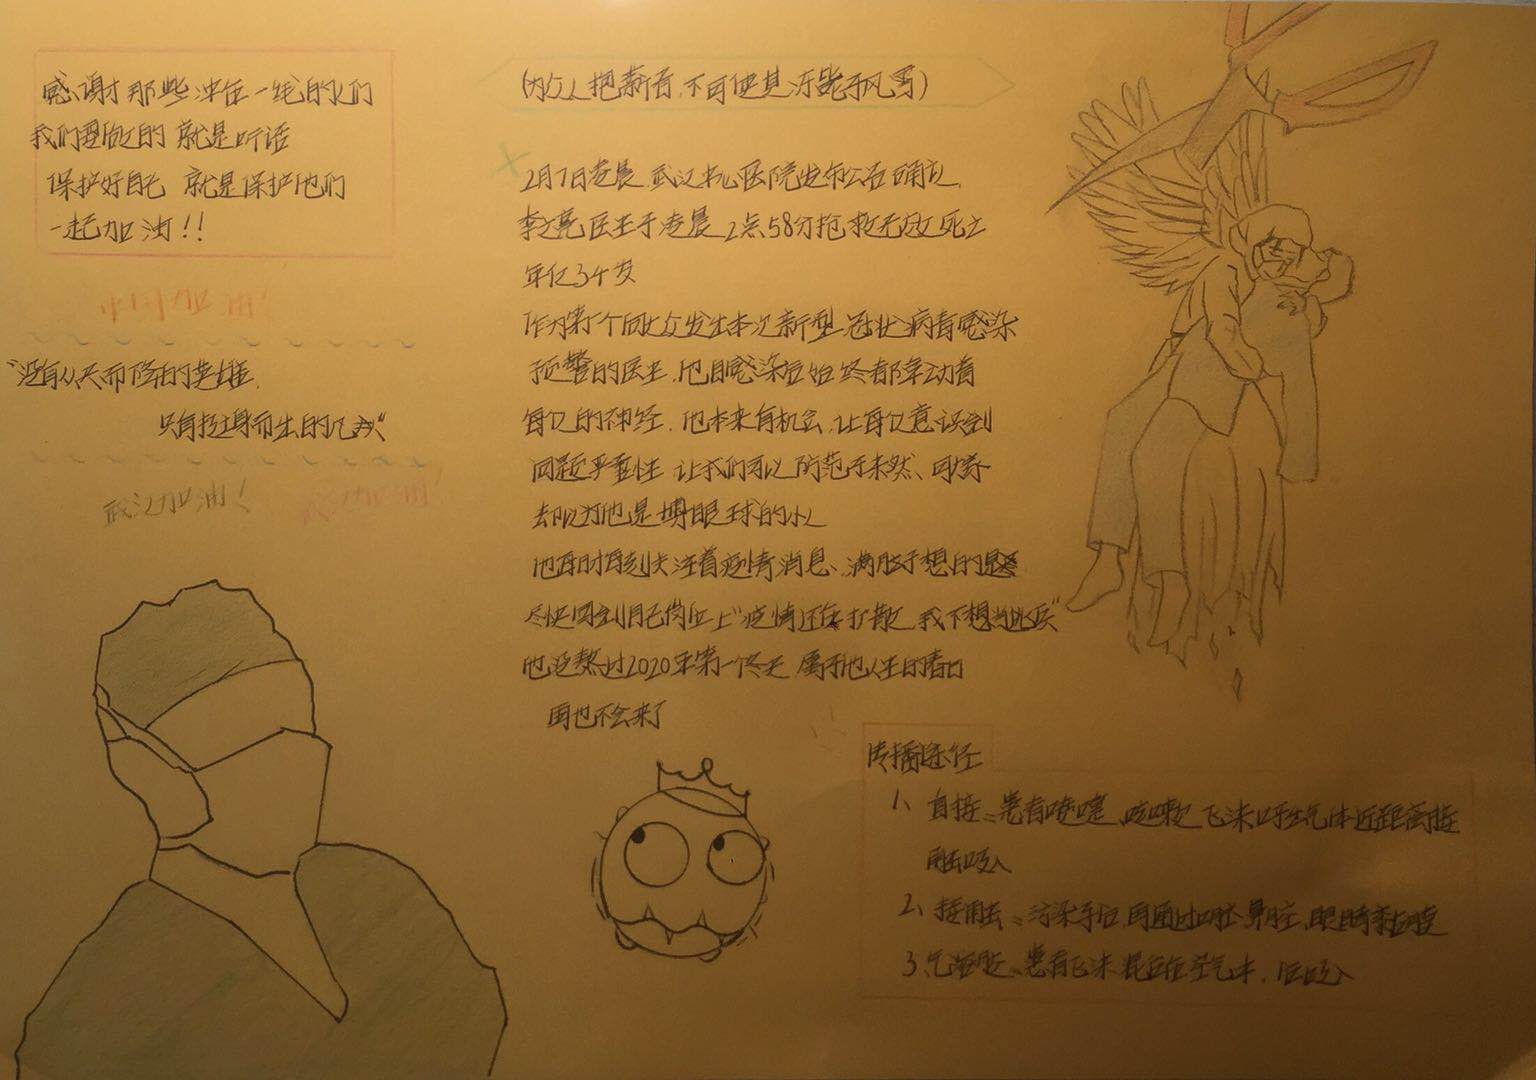 感谢那些冲在一线的人们
我们要做的 就是听话
保护好自己 就是保护他们
一起加油!!
中国加油!
"没有从天而降的英雄,
只有挺身而出的凡人"
武汉加油! 武汉加油!
(为众人抱薪者,不可使其冻毙于风雪)
2月7日凌晨,武汉中心医院发布公告确认,
李文亮医生于凌晨2点58分抢救无效死亡
年仅34岁
作为第一个向大众发出本次新型冠状病毒感染
预警的医生,他自感染后始终都牵动着
每人的神经,他本来有机会,让每人意识到
问题严重性 让我们可以防范于未然、可惜
却以为他是博眼球的小人
他每时每刻关注着疫情消息、满脑子想的是
尽快回到自己岗位上"疫情还在扩散,我不想当逃兵"
他没熬过2020年第一个冬天,属于他人生的春日
再也不会来了
传播途径
1、直接:患者喷嚏、咳嗽、飞沫,呼出气体近距离接
触吸入
2、接触:污染手后,再通过口腔、鼻腔、眼睛黏膜
3、气溶胶:患者飞沫混合在空气中,后吸入